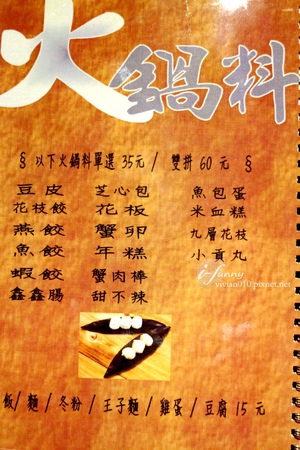 火鍋料
§ 以下火鍋料單選 35元 / 雙拼 60元 §
豆皮 芝心包 魚包蛋
花枝餃 花板 米血糕
燕餃 蟹卵 九層花枝
魚餃 年糕 小貢丸
蝦餃 蟹肉棒
鑫鑫腸 甜不辣
i-funny
vivian010.pixnet.net
飯/ 麵 / 冬粉 / 王子麵 / 雞蛋 / 豆腐 15元